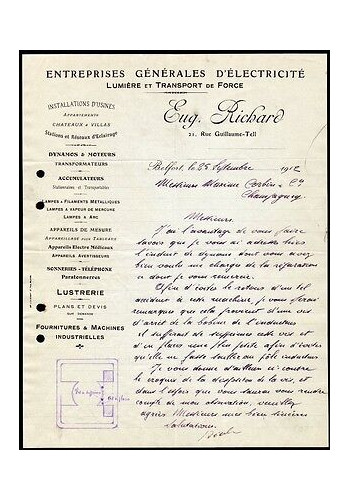 ENTREPRISES GÉNÉRALES D'ÉLECTRICITÉ
LUMIÈRE ET TRANSPORT DE FORCE
INSTALLATIONS D'USINES
APPARTEMENTS
CHATEAUX & VILLAS
Stations et Réseaux d'Eclairage
DYNAMOS & MOTEURS
TRANSFORMATEURS
ACCUMULATEURS
Stationnaires et Transportables
LAMPES A FILAMENTS MÉTALLIQUES
LAMPES A VAPEUR DE MERCURE
LAMPES A ARC
APPAREILS DE MESURE
APPAREILLAGE POUR TABLEAUX
Appareils Electro Médicaux
APPAREILS AVERTISSEURS
SONNERIES - TÉLÉPHONE
Paratonnerres
LUSTRERIE
PLANS ET DEVIS
SUR DEMANDE
FOURNITURES & MACHINES
INDUSTRIELLES
Eug. Richard
21, Rue Guillaume-Tell
Belfort, le 25 Septembre 1912
Messieurs Maxime Corbin & Cie
Champagney
Messieurs,
J'ai l'avantage de vous faire
savoir que je vous ai adressé hier
l'induit de dynamo dont vous avez
bien voulu me charger de la réparation
ce dont je vous remercie.
Afin d'éviter le retour d'un tel
accident à cette machine, je vous ferai
remarquer que cela provient d'une vis
d'arrêt de la bobine de l'inducteur
il suffirait de supprimer cette vis et
d'en placer une plus petite afin d'éviter
qu'elle ne fasse saillie au pôle inducteur
Je vous donne d'ailleurs ci-contre
le croquis de la disposition de la vis, et
dans l'espoir que vous saurez vous rendre
compte de mon observation, veuillez
agréer Messieurs mes bien sincères
salutations.